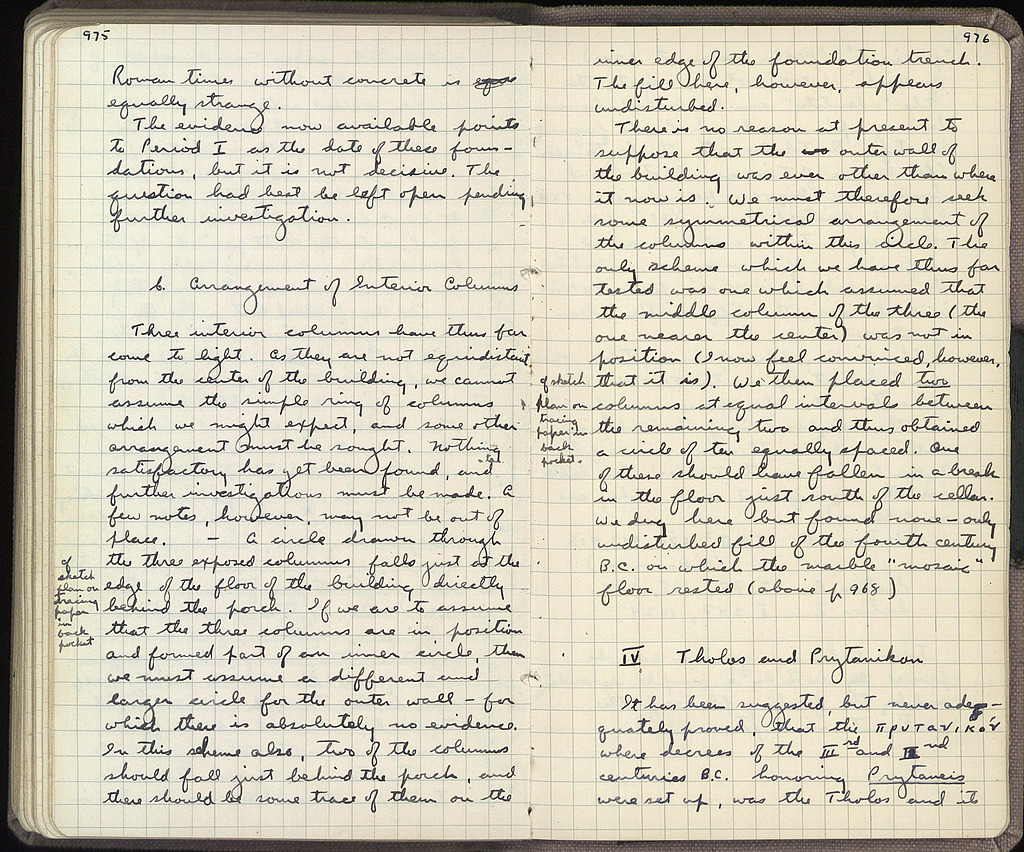 975
Roman times without concrete is
equally strange.
The evidence now available points
to Period I as the date of these foun-
dations, but it is not decisive. The
question had best be left open pending
further investigation.
6. Arrangement of Interior Columns
Three interior columns have thus far
come to light. As they are not equidistant
from the center of the building, we cannot
assume the simple ring of columns
which we might expect, and some other
arrangement must be sought. Nothing
satisfactory has yet been found, and
further investigations must be made. A
few notes, however, may not be out of
place. – A circle drawn through
the three exposed columns falls just at the
edge of the floor of the building directly
behind the porch. If we are to assume
that the three columns are in position
and formed part of an inner circle, then
we must assume a different and
larger circle for the outer wall – for
which there is absolutely no evidence.
In this scheme also, two of the columns
should fall just behind the porch, and
there should be some trace of them on the
cf
sketch
plan on
tracing
paper
in
back
pocket
976
inner edge of the foundation trench.
The fill here, however, appears
undisturbed.
There is no reason at present to
suppose that the outer wall of
the building was ever other than where
it now is. We must therefore seek
some symmetrical arrangement of
the columns within this circle. The
only scheme which we have thus far
tested was one which assumed that
the middle column of the three (the
one nearer the center) was not in
position (I now feel convinced, however,
that it is). We then placed two
columns at equal intervals between
the remaining two and thus obtained
a circle of ten equally spaced. One
of these should have fallen in a break
in the floor just south of the cellar.
We dug here but found none – only
undisturbed fill of the fourth century
B.C. on which the marble "mosaic"
floor rested (above p 968)
cf sketch
plan on
tracing
paper in
back
pocket.
IV Tholos and Prytanikon
It has been suggested, but never ade-
quately proved, that the πρυτανικόν
where decrees of the IIIrd and IInd
centuries B.C. honoring Prytaneis
were set up, was the Tholos and its